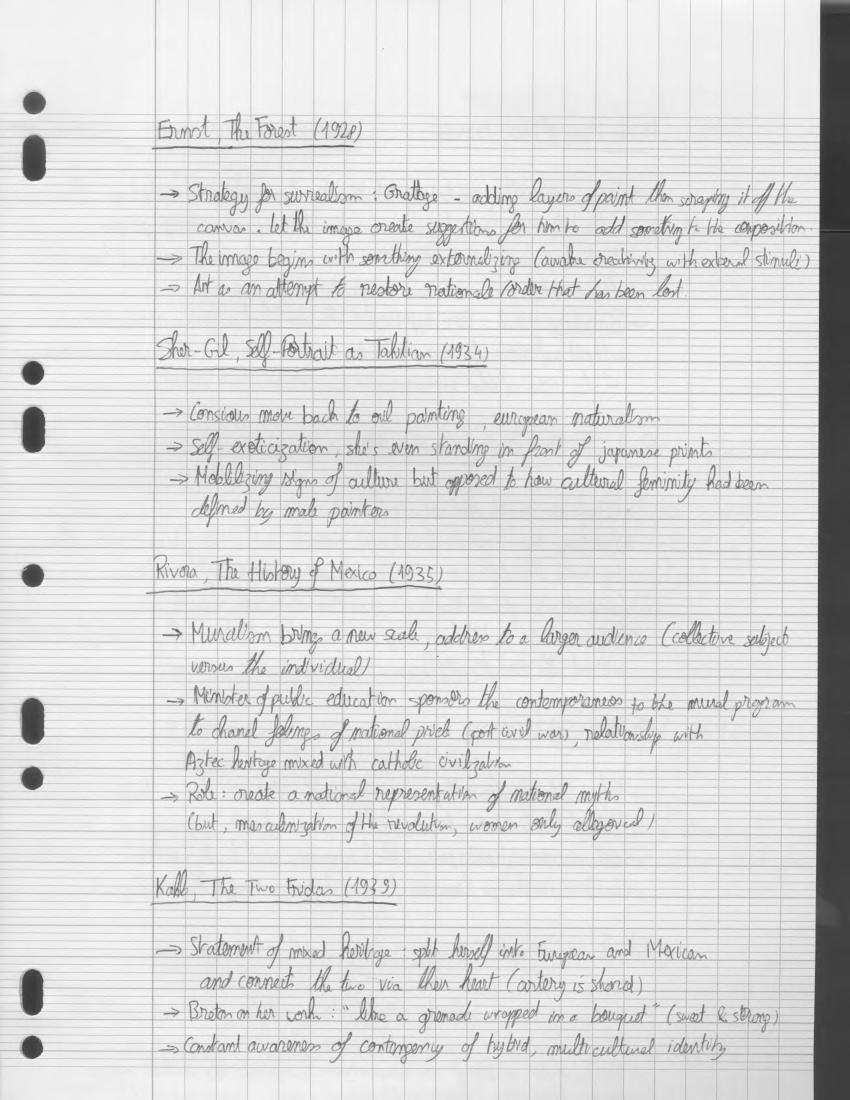 Ernst, The Forest (1928)
→ Strategy for surrealism : Grattage - adding layers of paint then scraping it off the
canvas. let the image create suggestions for him to add something to the composition.
→ The image begins with something externalizing (awake creativity with external stimuli)
→ Art as an attempt to restore rationale /order that has been lost.
Sher-Gil, Self-Portrait as Tahitian (1934)
→ Conscious move back to oil painting, european naturalism
→ Self-exoticization, she's even standing in front of japanese prints
→ Mobilizing signs of culture but opposed to how cultural feminity had been
defined by male painters
Rivera, The History of Mexico (1935)
→ Muralism brings a new scale, address to a larger audience (collective subject
versus the individual)
→ Minister of public education sponsors the contemporaneos to the mural program
to chanel feelings of national pride (post civil war), relationship with
Aztec heritage mixed with catholic civilization
→ Role : create a national representation of national myths
(but, masculinization of the revolution, women only allegorical)
Kahlo, The Two Fridas (1939)
→ Statement of mixed heritage : split herself into European and Mexican
and connects the two via their heart (artery is shared)
→ Breton on her work : "like a grenade wrapped in a bouquet" (sweet & strong)
→ Constant awareness of contingency of hybrid, multicultural identity